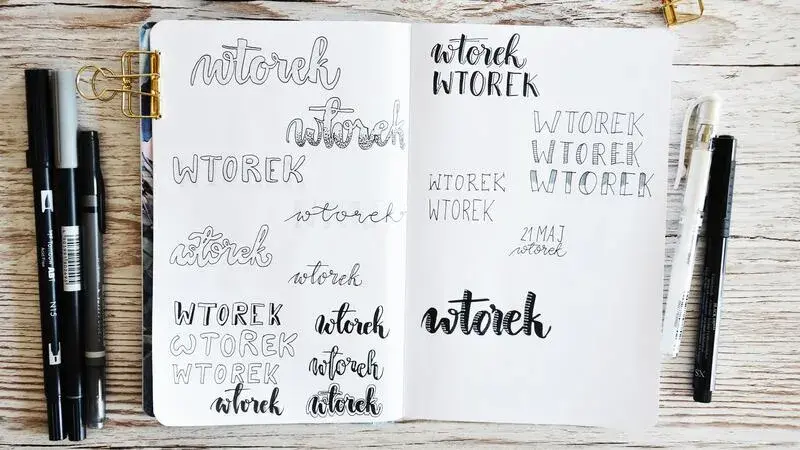 wtorek
wtorek
WTOREK
wtorek
wtorek
wtorek
WTOREK
WTOREK
WTOREK
wtorek
wtorek
wtorek
wtorek
wtorek
WTOREK
WTOREK
WTOREK
WTOREK
WTOREK
WTOREK
21 MAJ
wtorek
wtorek
ABT
N15